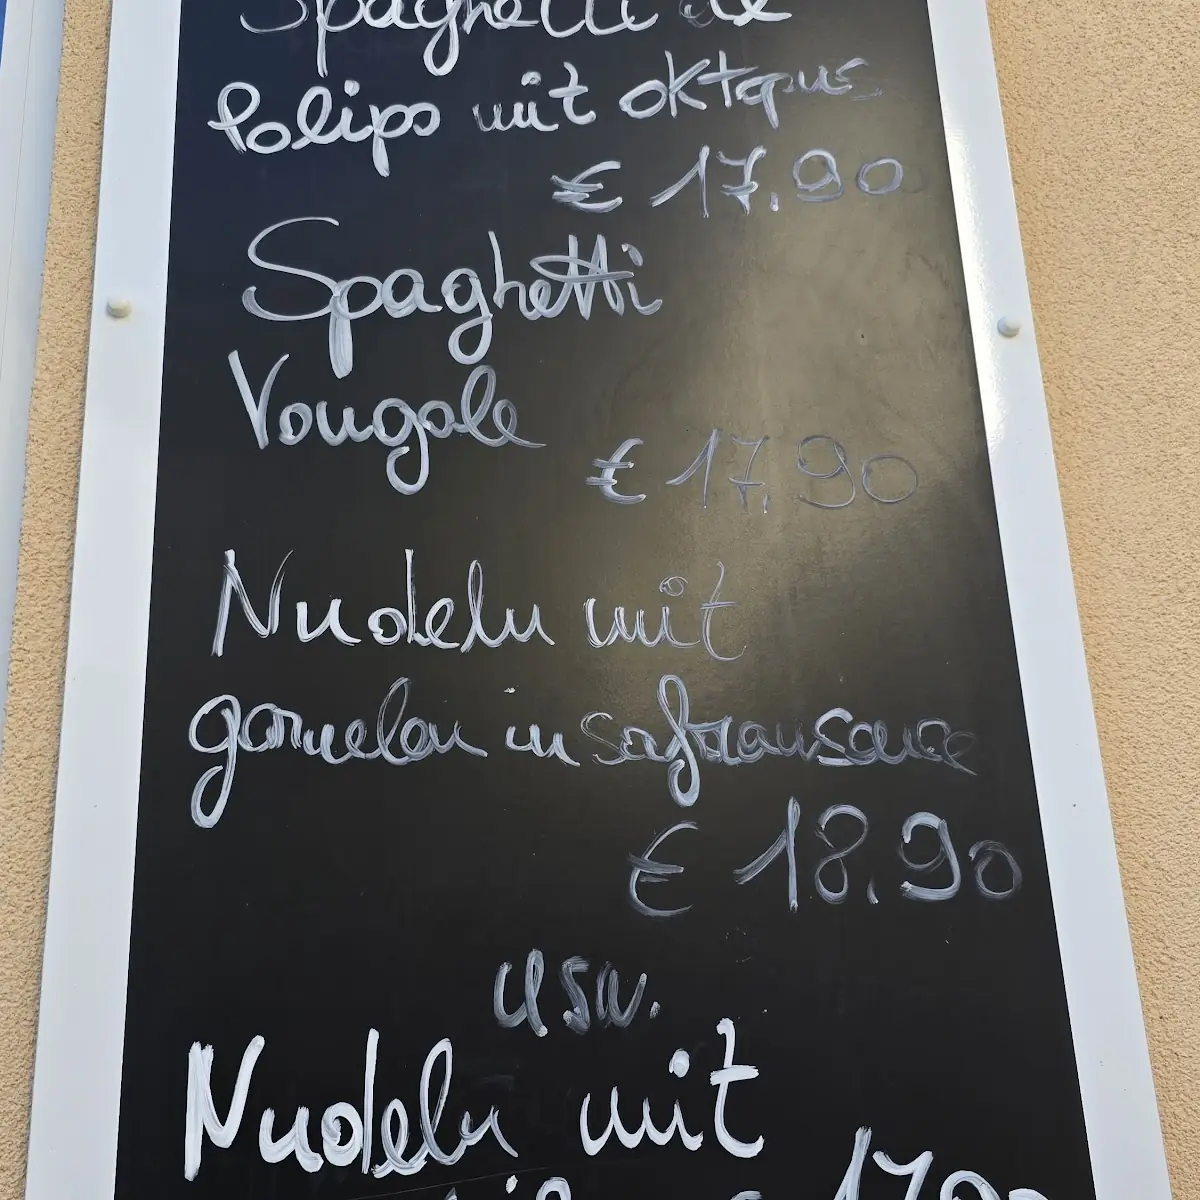 Spaghetti de
Polips mit oktopus
€ 17,90
Spaghetti
Vougole
€ 17,90
Nudeln mit
garnelen in safransauce
€ 18,90
usw.
Nudeln mit